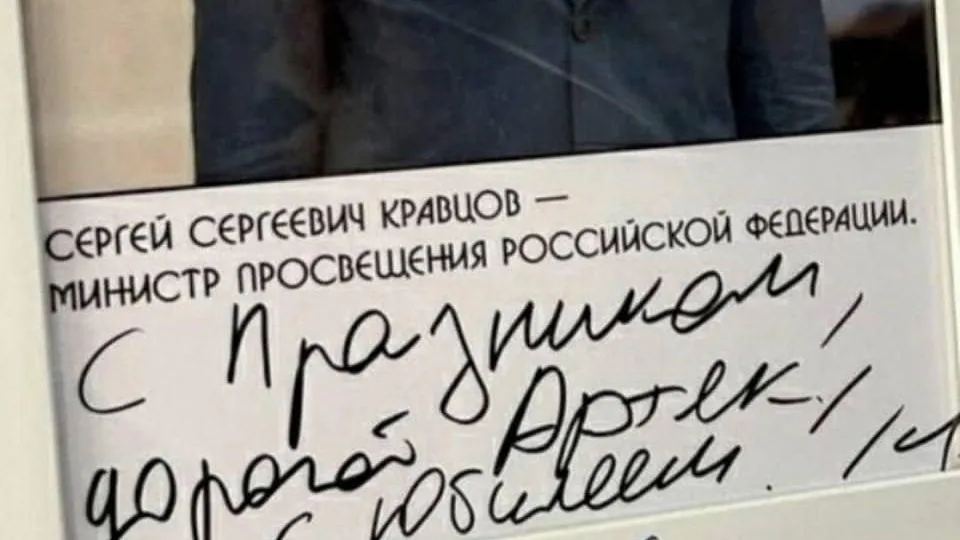 СЕРГЕЙ СЕРГЕЕВИЧ КРАВЦОВ —
МИНИСТР ПРОСВЕЩЕНИЯ РОССИЙСКОЙ ФЕДЕРАЦИИ.
С Праздником,
дорогой Артек!
С Юбилеем.